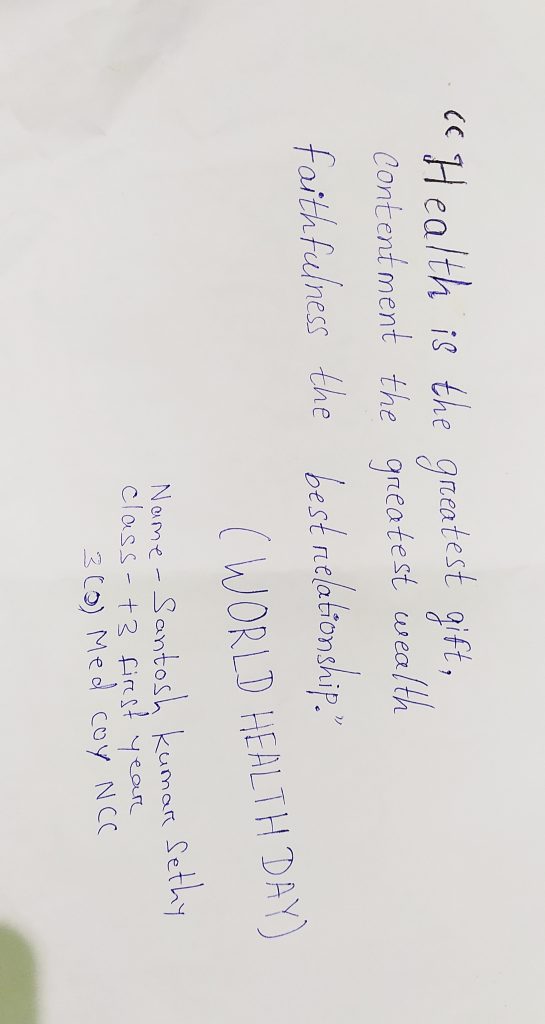 "Health is the greatest gift,
contentment the greatest wealth
faithfulness the best relationship."
(WORLD HEALTH DAY)
Name - Santosh Kumar Sethy
Class - +3 first year
3(O) Med coy NCC